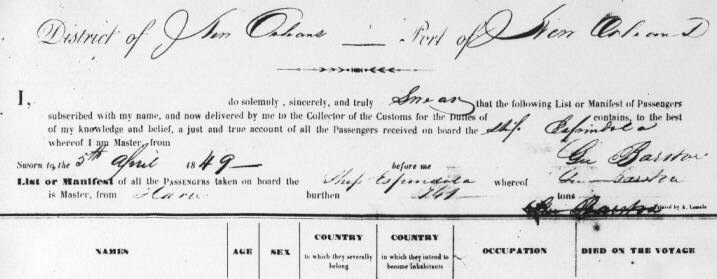 District of New Orleans — Port of New Orleans
I, do solemnly, sincerely, and truly Swear that the following List or Manifest of Passengers
subscribed with my name, and now delivered by me to the Collector of the Customs for the Duties of contains, to the best
of my knowledge and belief, a just and true account of all the Passengers received on board the Ship Espindola
whereof I am Master, from
Geo Barstow
Sworn to, the 5th April 1849 before me
List or Manifest of all the PASSENGERS taken on board the Ship Espindola whereof Geo Barstow
is Master, from Havre burthen tons
Geo Barstow
Printed by A. Lamele
NAMES AGE SEX COUNTRY to which they severally belong COUNTRY in which they intend to become inhabitants OCCUPATION DIED ON THE VOYAGE